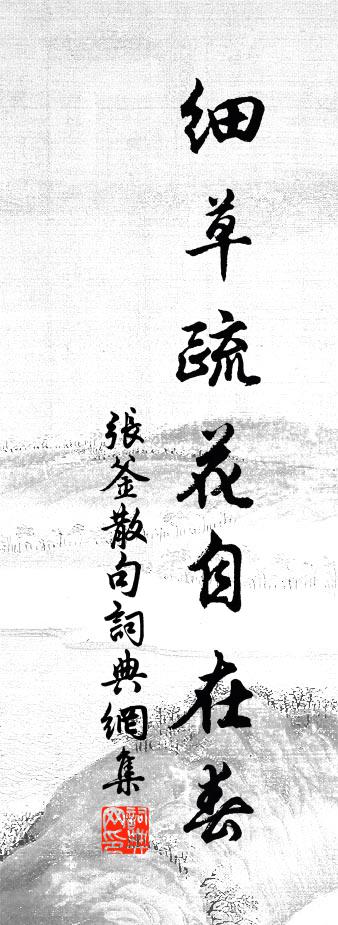 細草疏花自在春
張釜散句詞典網集
詞典網印